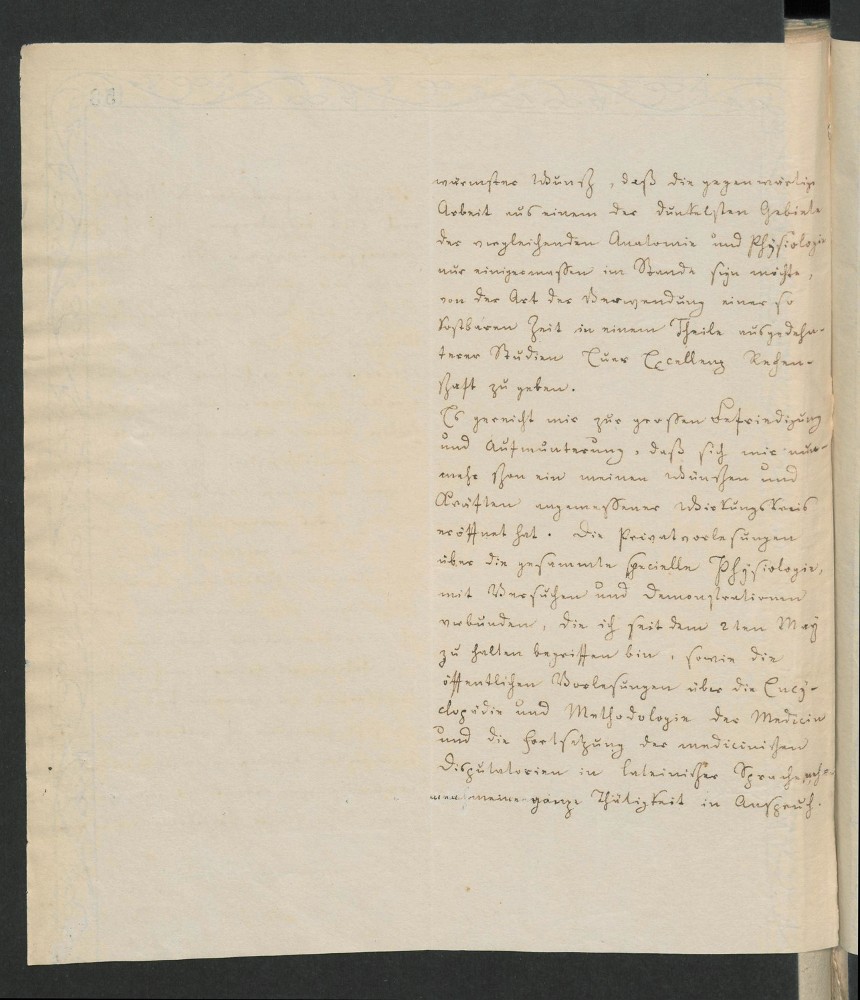 wärmster Wunsch, daß die gegenwärtige
Arbeit aus einem der dunkelsten Gebiete
der vergleichenden Anatomie und Physiologie
nur einigermassen im Stande seyn möchte,
von der Art der Verwendung einer so
kostbaren Zeit in einem Theile ausgedehn-
terer Studien Euer Excellenz Rechen-
schaft zu geben.
Es gereicht mir zur grossen Befriedigung
und Aufmunterung, daß sich mir nun-
mehr schon ein meinen Wünschen und
Kräften angemessener Wirkungskreis
eröffnet hat. Die Privatvorlesungen
über die gesammte specielle Physiologie,
mit Versuchen und Demonstrationen
verbunden, die ich seit dem 2ten May
zu halten begriffen bin, sowie die
öffentlichen Vorlesungen über die Ency-
clopädie und Methodologie der Medicin
und die Fortsetzung der medicinischen
Disputatorien in lateinischer Sprache neh-
men meine ganze Thätigkeit in Anspruch.